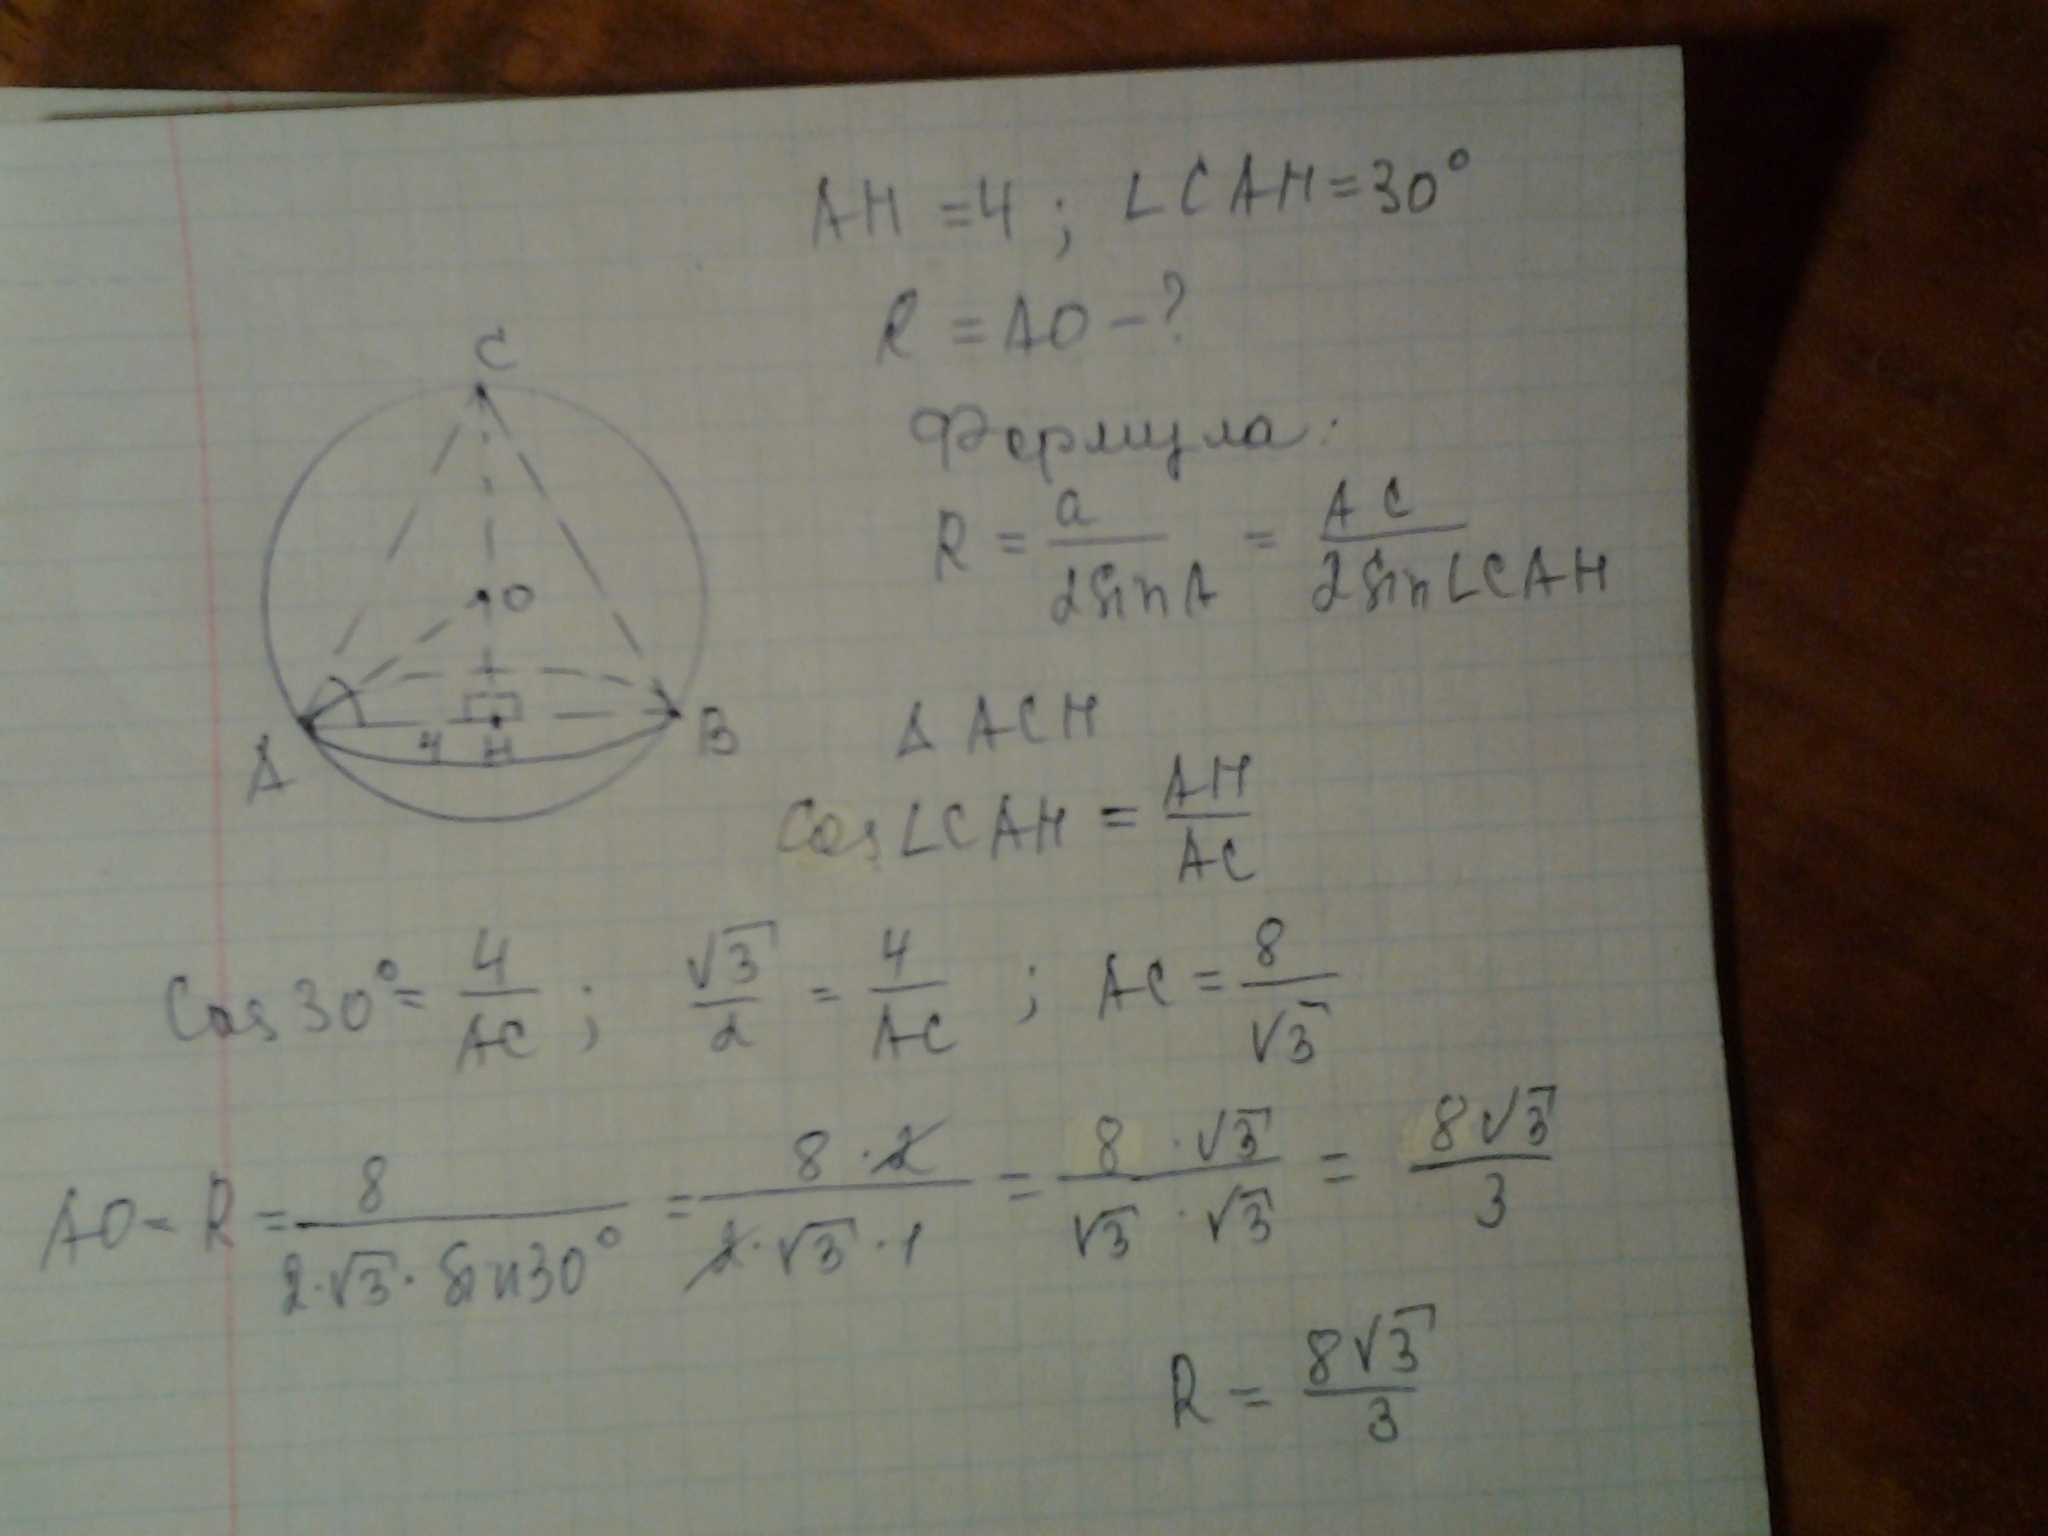 AH = 4 ; ∠CAH = 30°
R = AO - ?
Формула:
R = a / 2sinA = AC / 2sin∠CAH
C
O
A 4 H B
Δ ACH
cos∠CAH = AH / AC
Cos30° = 4 / AC ; √3 / 2 = 4 / AC ; AC = 8 / √3
AO = R = 8 / 2·√3·sin30° = 8·2 / 2·√3·1 = 8·√3 / √3·√3 = 8√3 / 3
R = 8√3 / 3